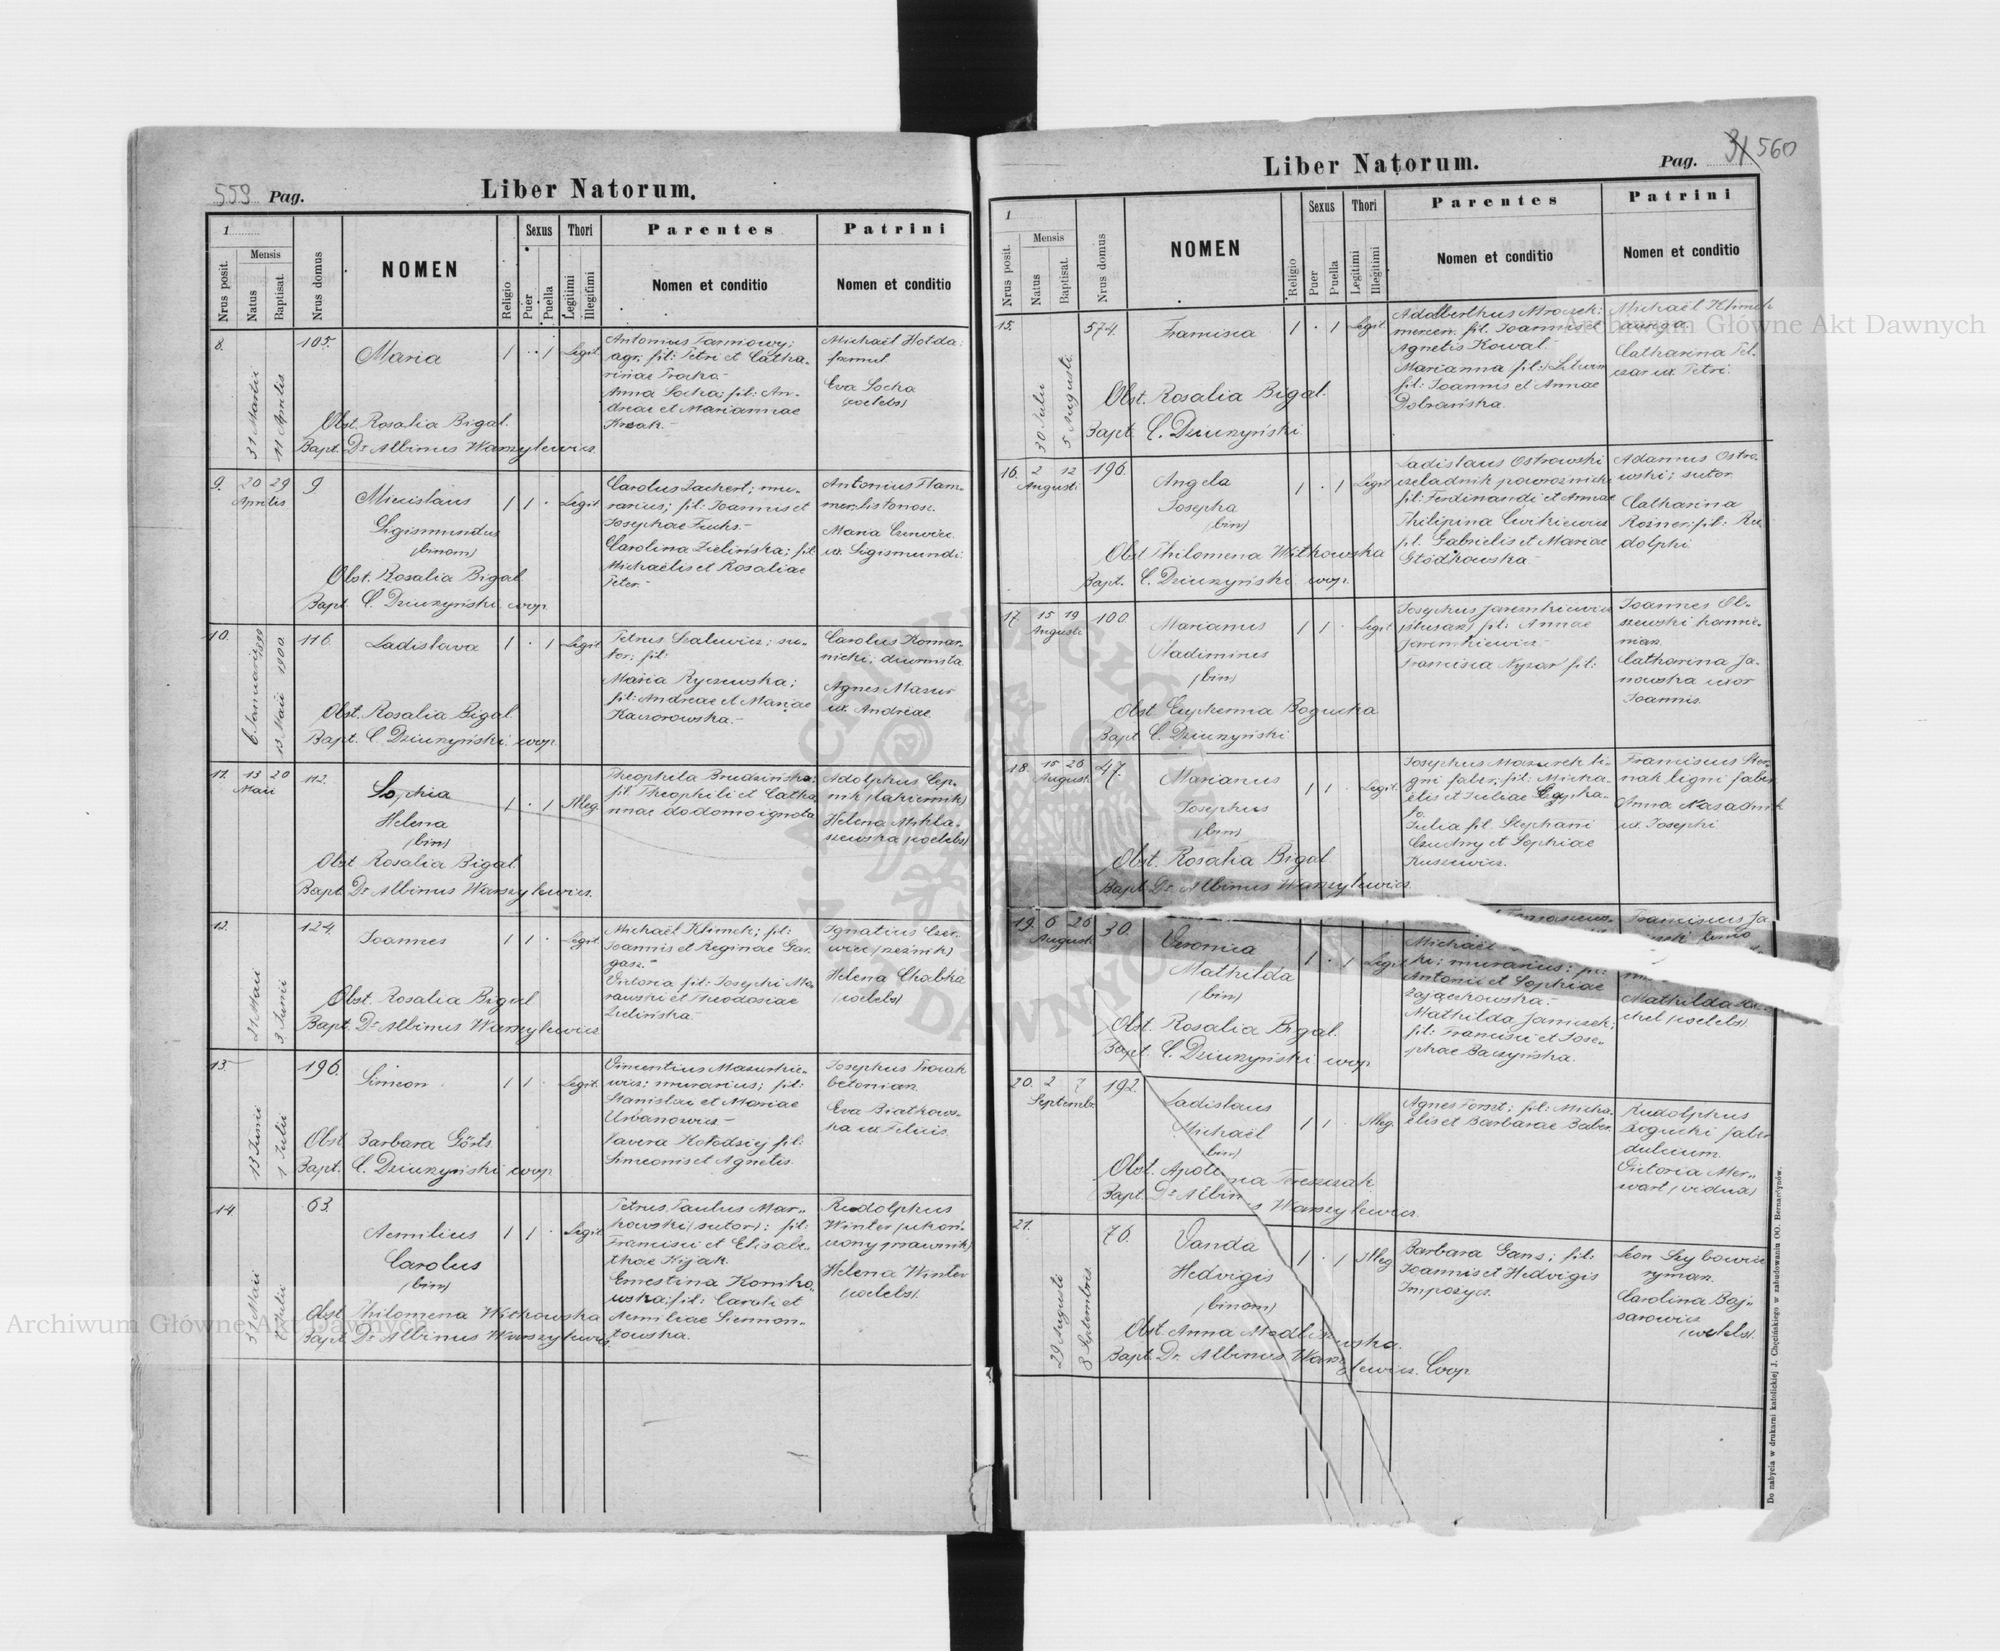 559 Pag.
Liber Natorum.
1
Nrus posit.
Mensis
Natus
Baptisat.
Nrus domus
NOMEN
Religio
Sexus
Puer
Puella
Thori
Legitimi
Illegitimi
Parentes
Nomen et conditio
Patrini
Nomen et conditio
8.
31 Martii
11 Aprilis
105.
Maria
1 · 1 Legit.
Obst. Rosalia Bigal.
Bapt. Dr Albinus Warszylewicz.
agr; fil: Petri et Catha-
rinae
Anna Socha; fil: An-
dreae et Mariannae
Michaël Hołda;
famul
Eva Socha
(coelebs)
9.
20 29
Aprilis
9
Miecislaus
Sigismundus
(binom)
1 1 · Legit.
Obst. Rosalia Bigal
Bapt. C. Dziurzyński coop.
Carolus Lachert; mu-
rarius; fil: Joannis et
Josephae Fuchs.-
Carolina Zielińska; fil:
Michaëlis et Rosaliae
Peter.-
Antonius Flam-
mer, listonosz.
Maria
ux. Sigismundi.
10.
6 Januarii 1899
13 Maii 1900
116.
Ladislava
1 · 1 Legit.
Obst. Rosalia Bigal
Bapt. C. Dziurzyński coop.
Petrus Szalewicz; su-
tor; fil:
Maria Ryczewska;
fil: Andreae et Mariae
Kaczorowska.-
Carolus Komar-
nicki; diurnista
Agnes Mazur
ux. Andreae
11.
13 20
Maii
112.
Sophia
Helena
(bin)
1 · 1 Illeg.
Obst. Rosalia Bigal.
Bapt. Dr Albinus Warszylewicz.
Theophila Brudzińska;
fil. Theophili et Catha-
rinae de domo ignota
Adolphus Cep-
nik (lakiernik)
Helena
(coelebs)
12.
21 Maii
3 Junii
124.
Joannes
1 1 · Legit.
Obst. Rosalia Bigal
Bapt. Dr Albinus Warszylewicz
Michaël Klimek; fil:
Joannis et Reginae Gar-
gasz.-
Victoria fil: Josephi Mo-
rawski et Theodosiae
Zielińska.-
Ignatius Czer-
wiec (rzeźnik)
Helena Chabka
(coelebs)
13.
13 Junii
1 Julii
196.
Simeon
1 1 · Legit.
Obst. Barbara Görtz
Bapt. C. Dziurzyński coop
Vincentius Mazurkie-
wicz; murarius; fil:
Stanislai et Mariae
Urbanowicz -
Xavera Kołodziej fil:
Simeonis et Agnetis
Josephus
betoniar.
Eva Białkows-
ka ux. Felicis.
14.
31 Maii
Julii
63.
Aemilius
Carolus
(bin)
1 1 · Legit.
Obst. Philomena Witkowska
Bapt. Dr Albinus Warszylewicz
Petrus Paulus Mar-
kowski (sutor); fil:
Francisci et Elisabe-
thae Kijak.
Ernestina Koniko-
wska; fil: Caroli et
Aemiliae Siemon-
towska.
Rudolphus
Winter (ukoń-
czony prawnik)
Helena Winter
(coelebs).
Liber Natorum.
Pag. 31 560
1
Nrus posit.
Mensis
Natus
Baptisat.
Nrus domus
NOMEN
Religio
Sexus
Puer
Puella
Thori
Legitimi
Illegitimi
Parentes
Nomen et conditio
Patrini
Nomen et conditio
15.
30 Julii
5 Augusti
574.
Francisca
1 · 1 Legit.
Obst. Rosalia Bigal.
Bapt. C. Dziurzyński
Adalberthus Mroczek;
mercen. fil. Joannis et
Agnetis Kowal.-
Marianna fil:
fil: Joannis et Annae
Dobrańska.
Michaël Klimek
auriga
Catharina Pel-
czar ux. Petri.
16.
2 12
Augusti
196.
Angela
Josepha
(bin)
1 · 1 Legit
Obst Philomena Witkowska
Bapt. C. Dziurzyński coop.
Ladislaus Ostrowski
czeladnik powroźnicki
fil: Ferdinandi et Annae
Philipina Cwikiewicz
fil. Gabrielis et Mariae
Głódkowska
Adamus Ostro-
wski; sutor
Catharina
Rosner; fil: Ru-
dolphi
17.
15 19
Augusti
100
Marianus
Vladimirus
(bin)
1 1 · Legit
Obst Euphemia Bogucka
Bapt C. Dziurzyński
Josephus Jaremkiewicz
(ślusarz) fil: Annae
Jaremkiewicz -
Francisca Nyzar fil:
Joannes Ol-
szewski kamie-
niar.
Catharina Ja-
nowska uxor
Joannis.
18.
15 26
August.
47.
Marianus
Josephus
(bin)
1 1 · Legit.
Obst. Rosalia Bigal
Bapt. Dr Albinus Warszylewicz.
Josephus Mazurek li-
gni faber; fil: Micha-
ëlis et Juliae
Julia fil. Stephani
et Sophiae
Ruszewicz.
Franciscus
ligni faber
Anna Nasadnik
ux. Josephi
19.
6 26
August.
30.
Veronica
Mathilda
(bin)
1 · 1 Legit.
Obst. Rosalia Bigal.
Bapt. C. Dziurzyński coop
Michaël
ki; murarius; fil:
Antonii et Sophiae
Zajączkowska.-
Mathilda Janiczek;
fil: Francisci et Jose-
phae Baczyńska.
Franciscus Ja-
Mathilda
(coelebs).
20.
2 7
Septemb.
192.
Ladislaus
Michaël
(bin)
1 1 · Illeg.
Obst. Apolo na
Bapt. Dr Albin s Warszylewicz.
Agnes Forszt; fil: Micha-
ëlis et Barbarae Baber.
Rudolphus
Bogucki faber
dulcium.
Victoria Mer-
wart (vidua)
21.
29 Augusti
8 Septembris.
76.
Vanda
Hedvigis
(binom)
1 · 1 Illeg
Obst. Anna
Bapt. Dr. Albinus Warszylewicz. Coop
Barbara Gans; fil:
Joannis et Hedvigis
Leon Szybowicz
rymarz.
Carolina Baj-
sarowicz
(coelebs).
Do nabycia w drukarni katolickiej J. Chęcińskiego w zabudowaniu OO. Bernardynów.
Archiwum Główne Akt Dawnych
Archiwum Główne Akt Dawnych